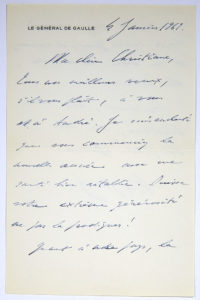 LE GÉNÉRAL DE GAULLE
4 Janvier 1962.
Ma chère Christiane,
Tous nos meilleurs vœux,
s'il vous plaît, à vous
et à André. Je
que vous commenciez la
nouvelle année avec une
santé bien rétablie. Puisse
votre extrême générosité
ne pas la prodiguer!
Quant à notre pays, la